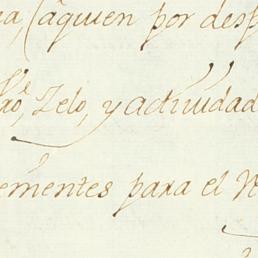 a, (aquien por desp
Zelo, y actiuidad
ementes para el